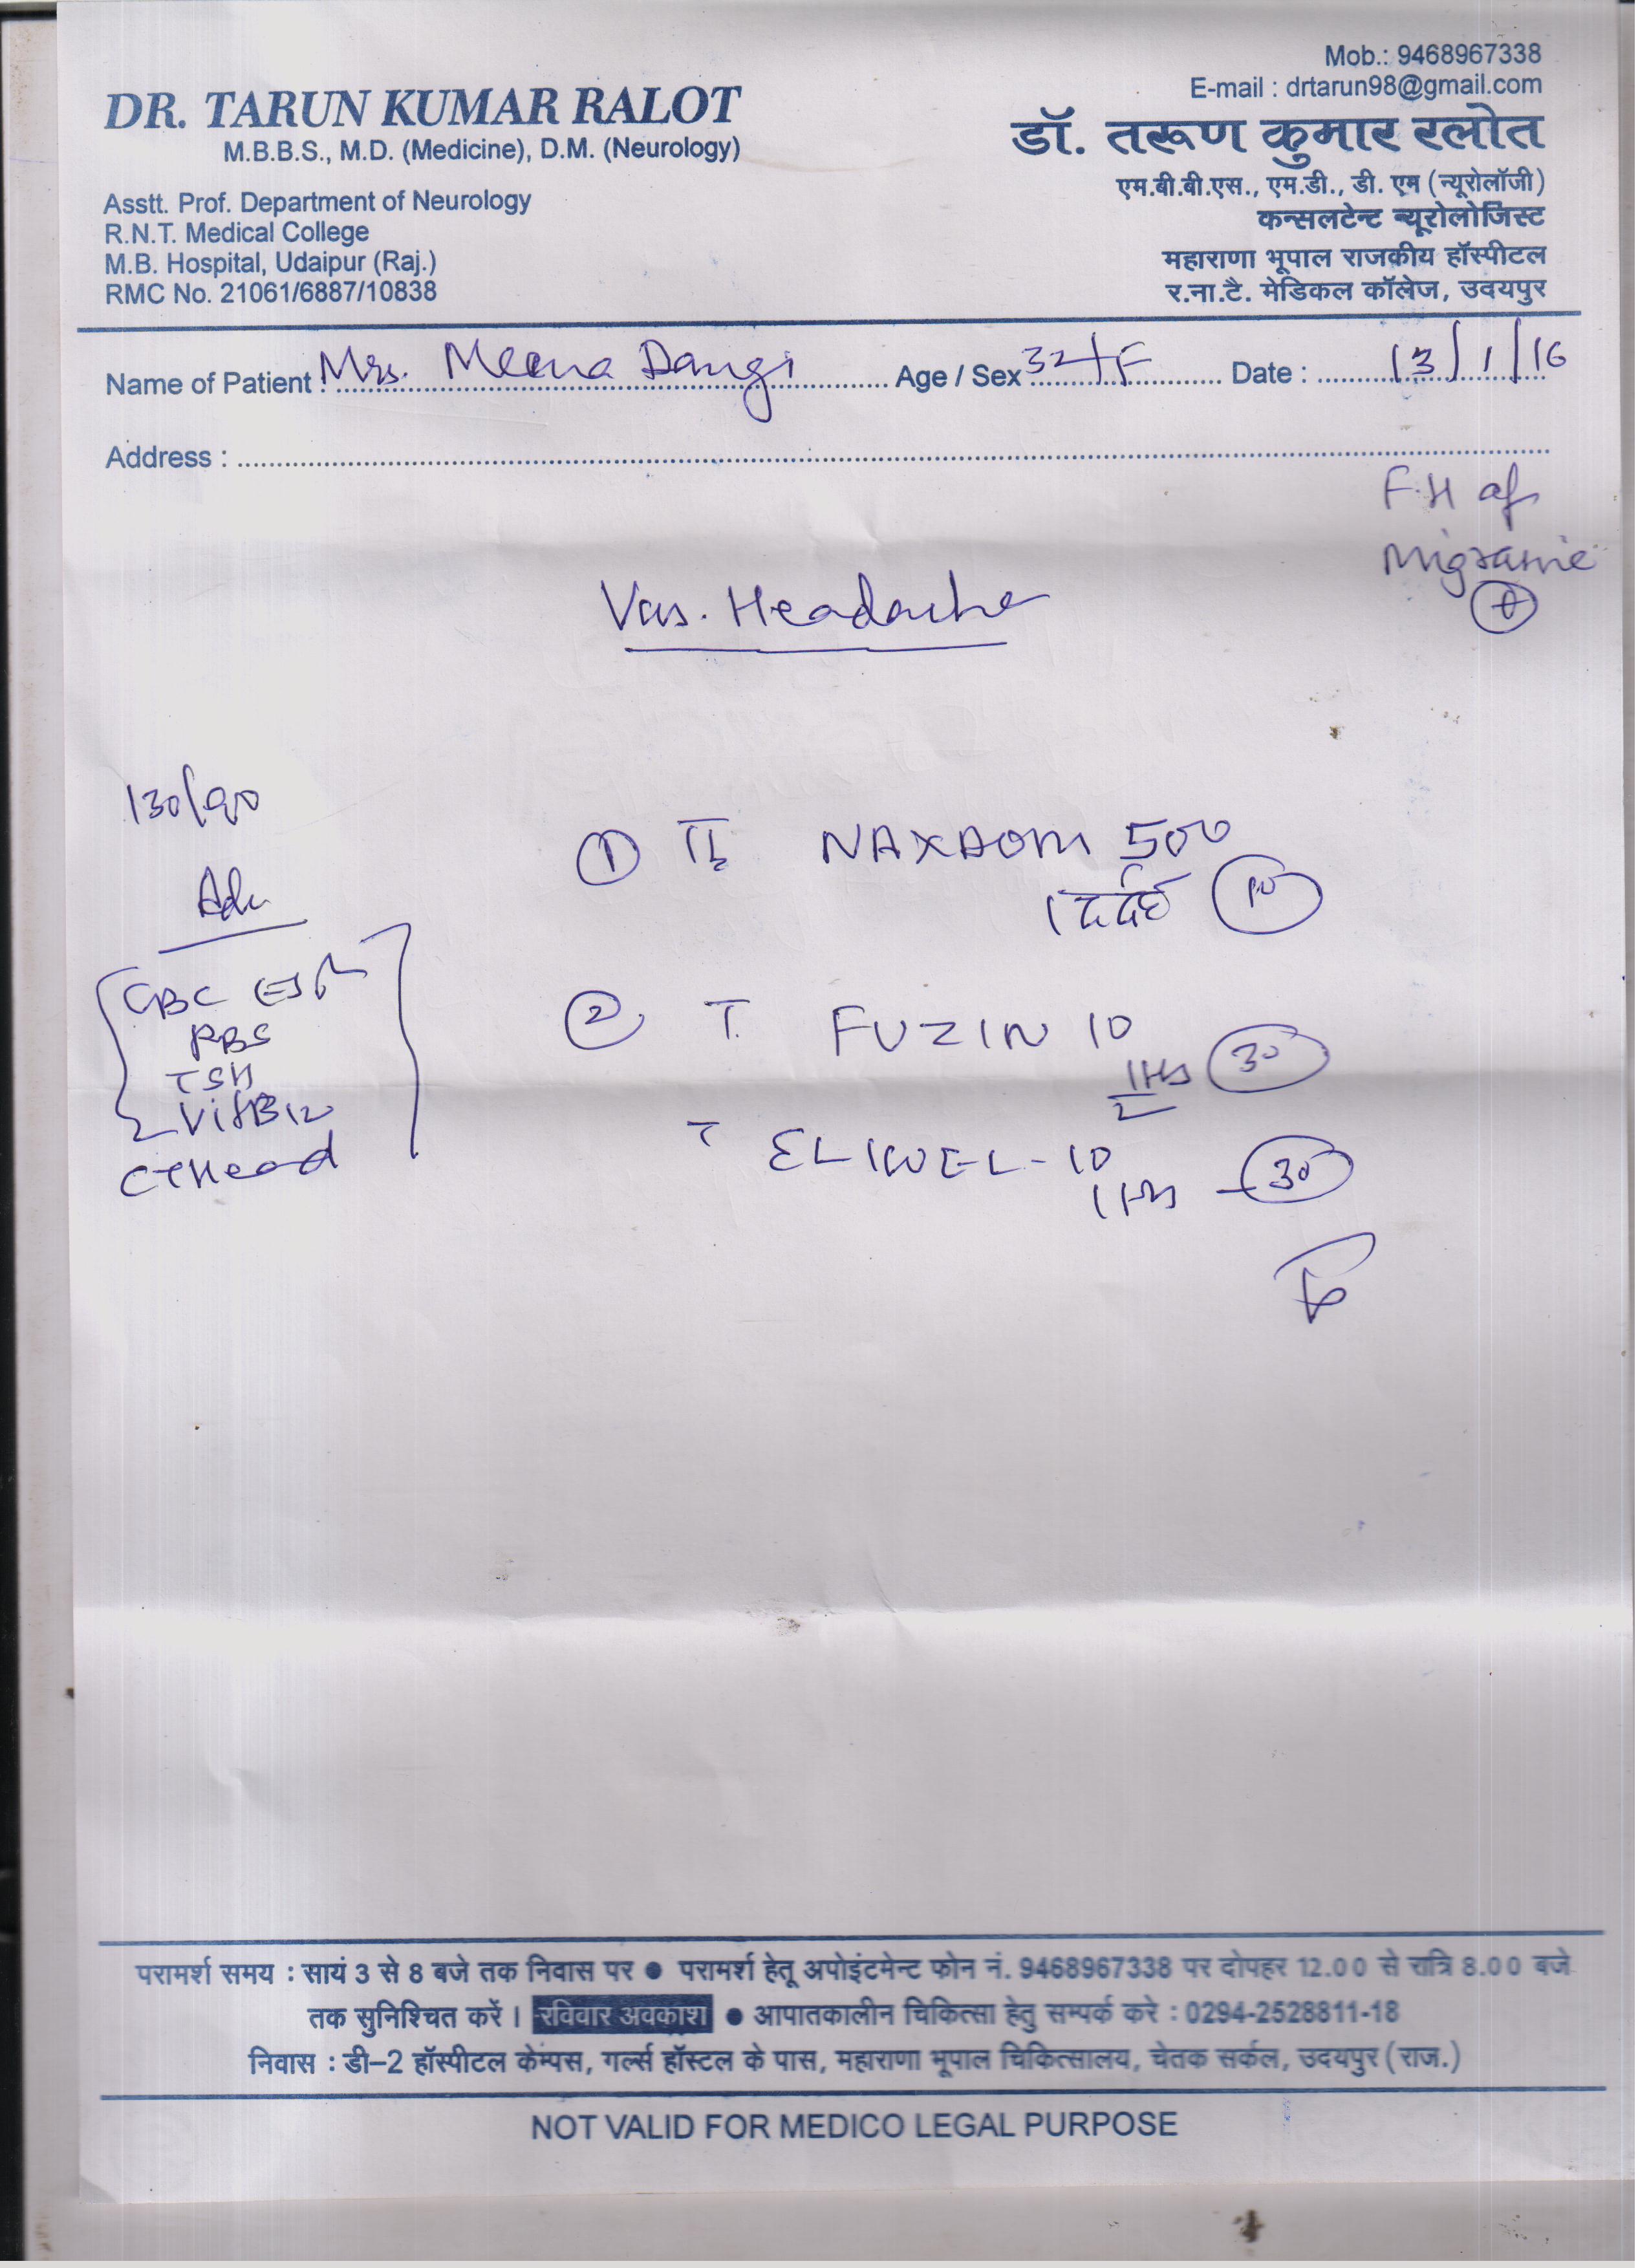 Mob.: 9468967338
E-mail : drtarun98@gmail.com
DR. TARUN KUMAR RALOT
M.B.B.S., M.D. (Medicine), D.M. (Neurology)
Asstt. Prof. Department of Neurology
R.N.T. Medical College
M.B. Hospital, Udaipur (Raj.)
RMC No. 21061/6887/10838
डॉ. तरूण कुमार रलोत
एम.बी.बी.एस., एम.डी., डी. एम (न्यूरोलॉजी)
कन्सलटेन्ट न्यूरोलोजिस्ट
महाराणा भूपाल राजकीय हॉस्पीटल
र.ना.टै. मेडिकल कॉलेज, उदयपुर
Name of Patient : Mrs. Meena Dangi Age / Sex 32/F Date : 13/1/16
Address :
F.H of
Migraine
+
Vas. Headache
130/90
Adv
CBC ESR
RBS
TSH
Vit B12
CT Head
① T. NAXDOM 500
1 दर्द 10
② T. FUZIN 10
1/2 HS 30
T ELIWEL-10
1 HS - 30
परामर्श समय : सायं 3 से 8 बजे तक निवास पर ● परामर्श हेतू अपोइंटमेन्ट फोन नं. 9468967338 पर दोपहर 12.00 से रात्रि 8.00 बजे
तक सुनिश्चित करें । रविवार अवकाश ● आपातकालीन चिकित्सा हेतु सम्पर्क करे : 0294-2528811-18
निवास : डी-2 हॉस्पीटल केम्पस, गर्ल्स हॉस्टल के पास, महाराणा भूपाल चिकित्सालय, चेतक सर्कल, उदयपुर (राज.)
NOT VALID FOR MEDICO LEGAL PURPOSE